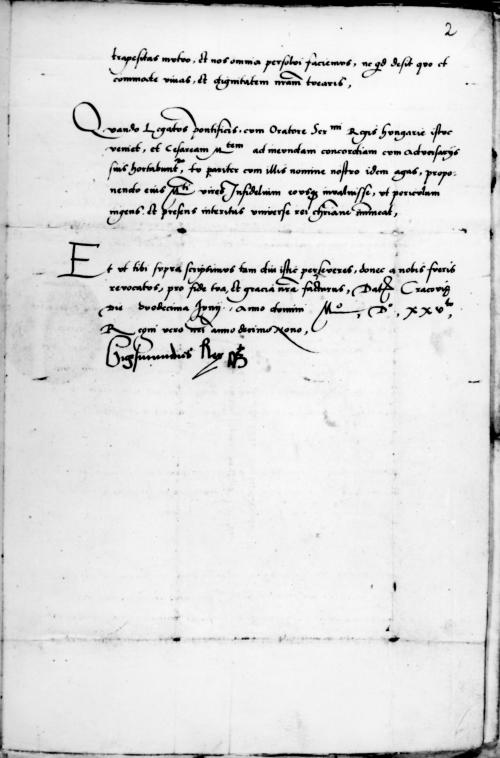 2
trapesitas mutuo, Et nos omnia persolvi faciemus, ne qd desit quo et
commode vivas, et dignitatem nram tuearis,
Quando Legatus pontificis, cum Oratore Ser mi Regis Hungarie istuc
veniet, et Cesaream M tem ad ineundam concordiam cum Adversarijs
suis hortabuntr, tu pariter cum illis nomine nostro idem agas, propo-
nendo eius Mti vires Infidelium eousq invaluisse, ut periculum
ingens, Et presens interitus universe rei chriane immineat,
Et ut tibi supra scripsimus tam diu istic perseveres, donec a nobis fueris
revocatus, pro fide tua, Et gracia nra facturus, Datu Cracovie
Die duodecima Junij, Anno domini Mo, Do, XXVto,
Regni vero nri anno decimo Nono,
Sigismundus Rex